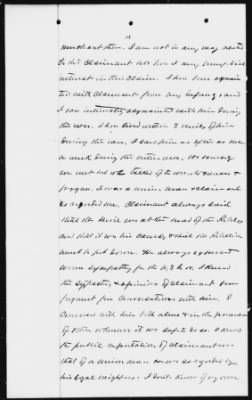 merchant there. I am not in any way related
to the claimant nor have I any
interest in his claim. I have been acquain
ted with claimant from my infancy and
I was intimately acquainted with him during
the war. I have lived within 2 miles of him
during the war, I saw him as often as once
a week during the entire war. We
met but we talked of the war its causes &
progress. I was a union man & claimant
so regarded me. Claimant always said
that the devil was at the head of the Rebellion
and that it was his cause, & that the Rebellion
must be put down. He always expressed
warm sympathy for the U.S.
the sympathies & opinions of claimant from
frequent conversations with him. I
conversed with him both alone & in the presence
of other union men it was safe to do so. I know
the public reputation of claimant was
that of a union man & was so regarded by
his loyal neighbors. I don't know of my own